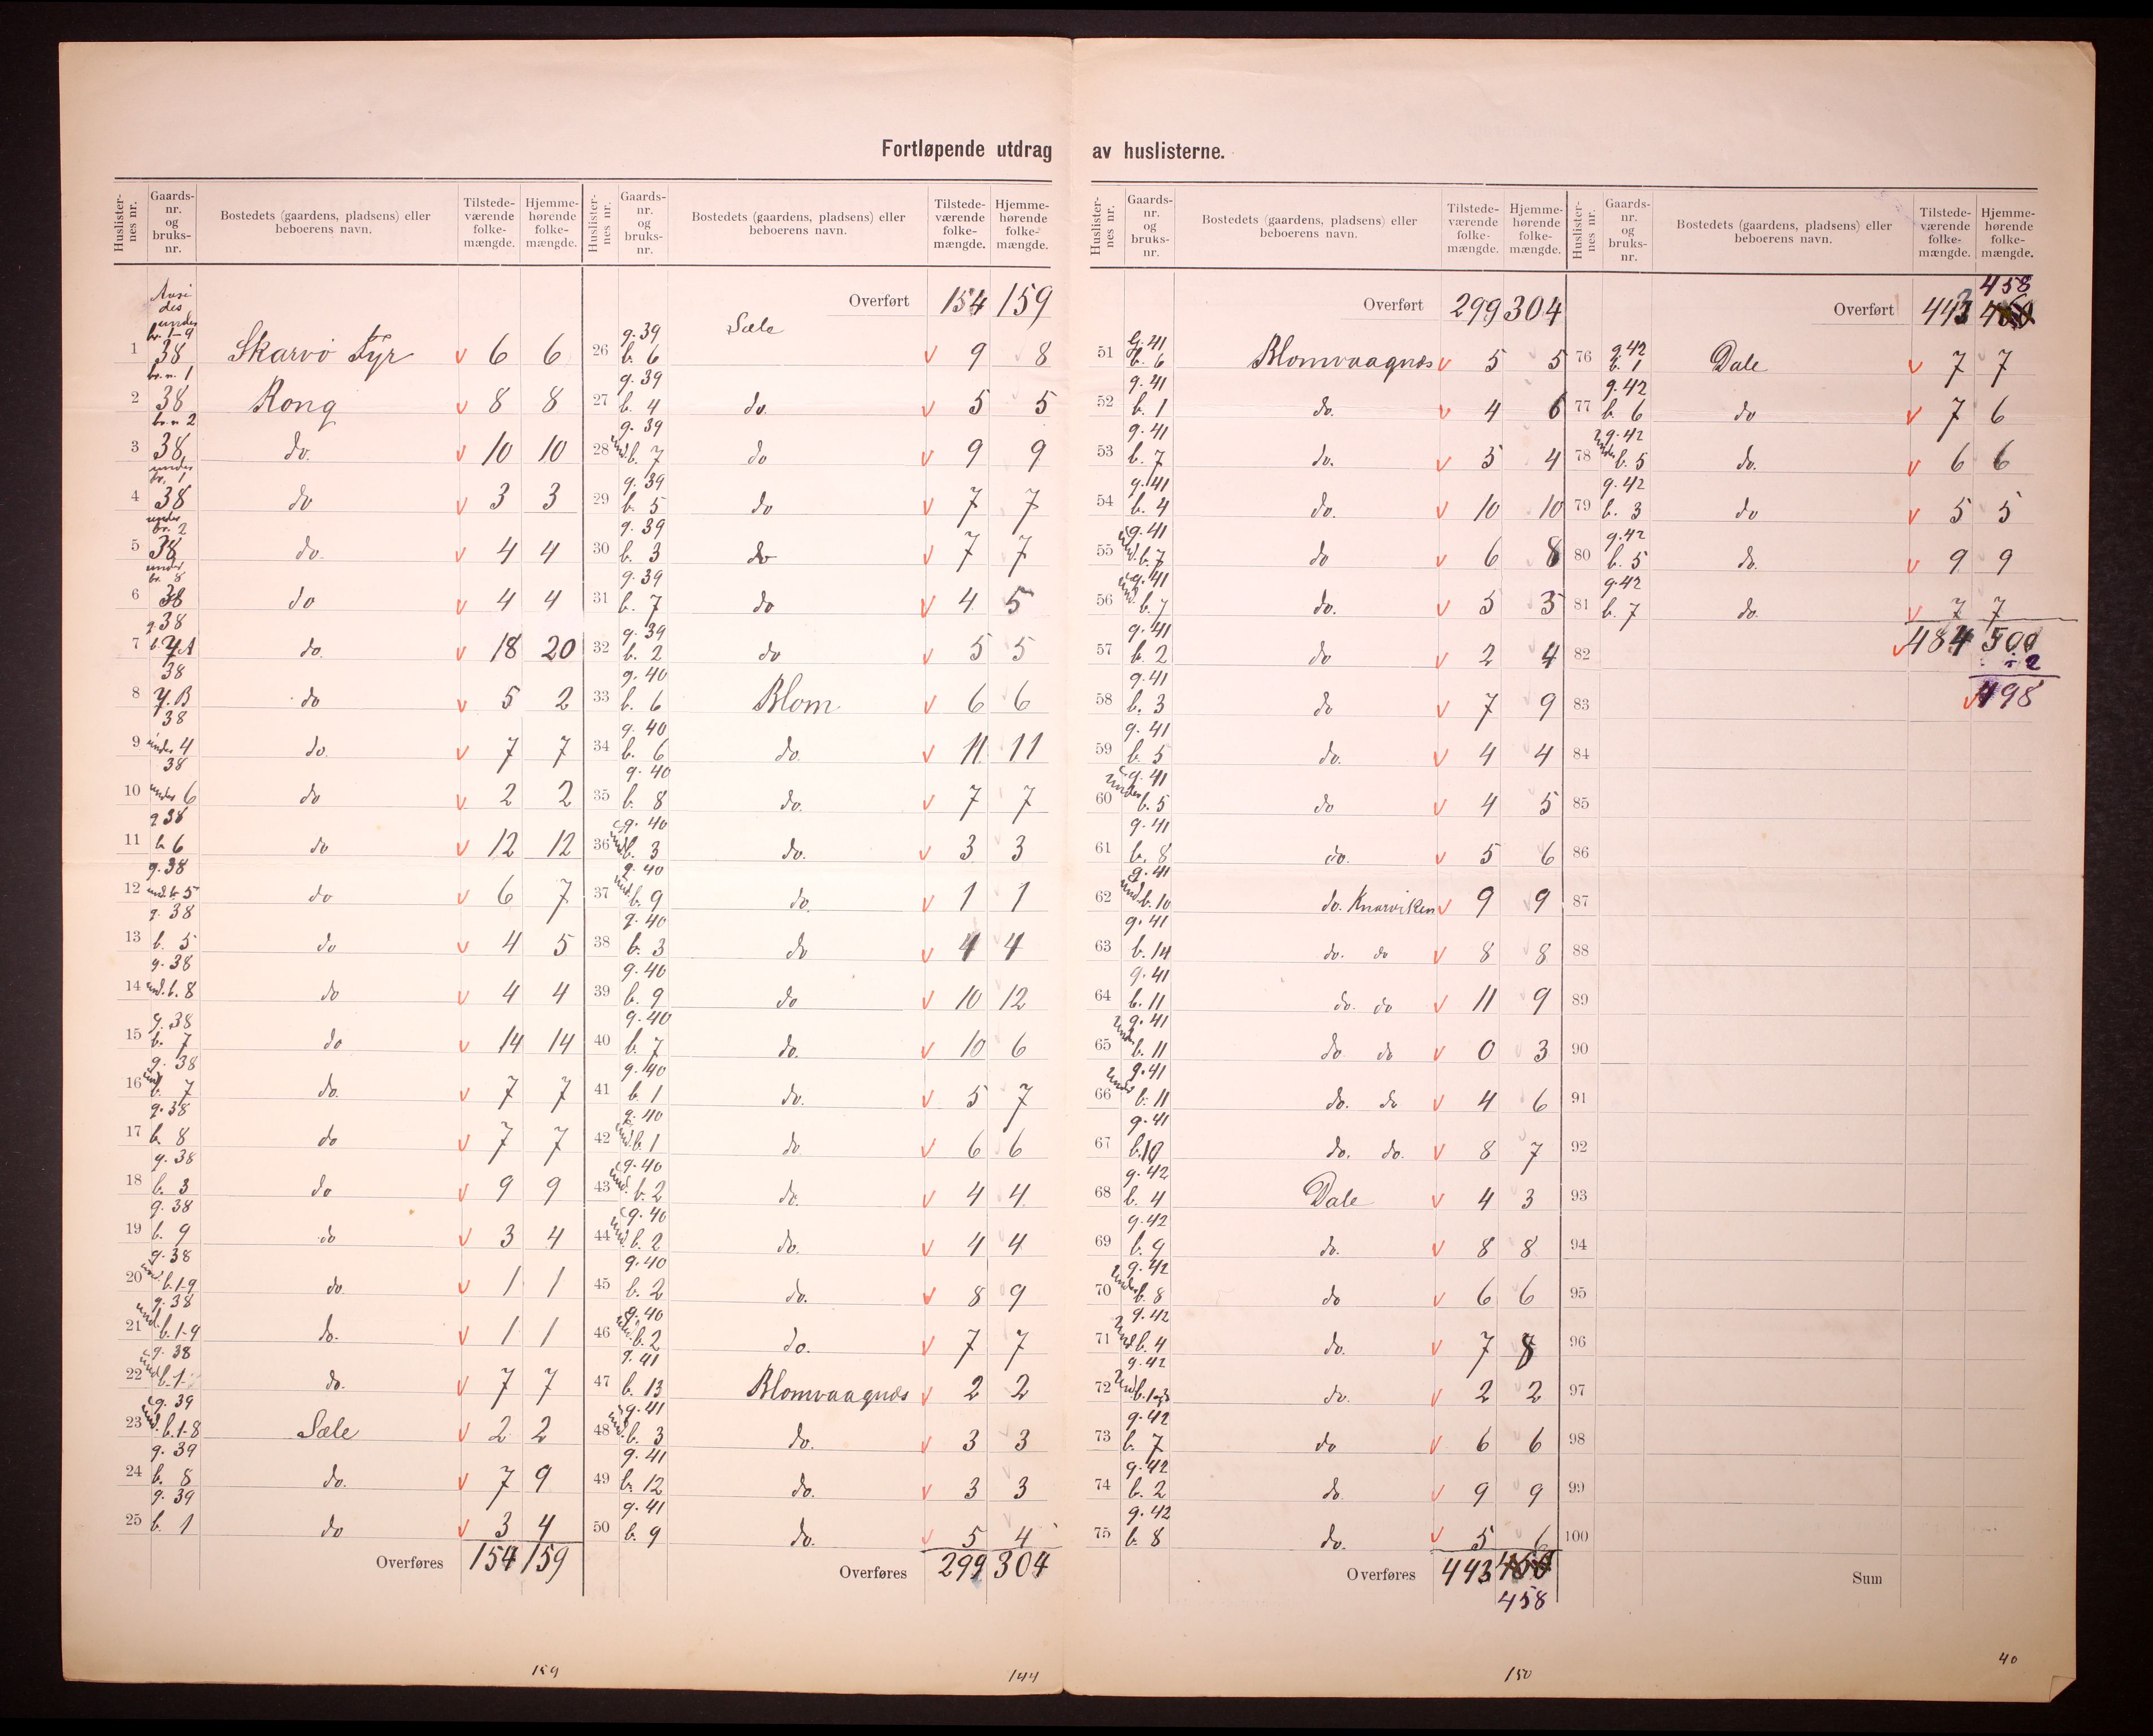 Fortløpende utdrag av huslisterne.
Huslister-nes nr. Gaards-nr. og bruks-nr. Bostedets (gaardens, pladsens) eller beboerens navn. Tilstede-værende folke-mængde. Hjemme-hørende folke-mængde.
br. 1-9
1 38 Skarvø Fyr v 6 6
br.n. 1
2 38 Rong v 8 8
br.n 2
3 38 do. v 10 10
under br. 1
4 38 do v 3 3
under br. 2
5 38 do. v 4 4
under br. 8
6 38 do v 4 4
g. 38
7 b. 4A do. v 18 20
38
8 4.B do v 5 2
38
9 under 4 do. v 7 7
38
10 under 6 do v 2 2
g 38
11 b. 6 do v 12 12
g. 38
12 und. b. 5 do v 6 7
g. 38
13 b. 5 do v 4 5
g. 38
14 und. b. 8 do v 4 4
g. 38
15 b. 7 do v 14 14
g. 38
16 und. b. 7 do. v 7 7
g. 38
17 b. 8 do v 7 7
g. 38
18 b. 3 do v 9 9
g. 38
19 b. 9 do v 3 4
g. 38
20 und. b. 1-9 do v 1 1
g. 38
21 und. b. 1-9 do. v 1 1
g. 38
22 und b. 1- do. v 7 7
g. 39
23 und. b. 1-8 Sæle v 2 2
g. 39
24 b. 8 do. v 7 9
g. 39
25 b. 1 do v 3 4
Overføres 154 159
159
Huslister-nes nr. Gaards-nr. og bruks-nr. Bostedets (gaardens, pladsens) eller beboerens navn. Tilstede-værende folke-mængde. Hjemme-hørende folke-mængde.
Overført 154 159
g. 39 Sæle
26 b. 6 v 9 8
g. 39
27 b. 4 do. v 5 5
g. 39
28 und. b. 7 do v 9 9
g. 39
29 b. 5 do v 7 7
g. 39
30 b. 3 do v 7 7
g. 39
31 b. 7 do v 4 5
g. 39
32 b. 2 do v 5 5
g. 40
33 b. 6 Blom v 6 6
g. 40
34 b. 6 do. v 11 11
g. 40
35 b. 8 do. v 7 7
g. 40
36 und. b. 3 do. v 3 3
g. 40
37 und. b. 9 do. v 1 1
g. 40
38 b. 3 do v 4 4
g. 40
39 b. 9 do v 10 12
g. 40
40 b. 7 do. v 10 6
g. 40
41 b. 1 do. v 5 7
g. 40
42 und. b. 1 do v 6 6
g. 40
43 und. b. 2 do. v 4 4
g. 40
44 und. b. 2 do. v 4 4
g. 40
45 b. 2 do. v 8 9
g. 40
46 und. b. 2 do. v 7 7
g. 41
47 b. 13 Blomvaagnæs v 2 2
g. 41
48 und. b. 3 do. v 3 3
g. 41
49 b. 12 do. v 3 3
g. 41
50 b. 9 do. v 5 4
Overføres 299 304
144
Huslister-nes nr. Gaards-nr. og bruks-nr. Bostedets (gaardens, pladsens) eller beboerens navn. Tilstede-værende folke-mængde. Hjemme-hørende folke-mængde.
Overført 299 304
g. 41
51 b. 6 Blomvaagnæs v 5 5
g. 41
52 b. 1 do. v 4 6
g. 41
53 b. 7 do. v 5 4
g. 41
54 b. 4 do. v 10 10
g. 41
55 und. b. 7 do v 6 8
g. 41
56 und. b. 7 do. v 3 3
g. 41
57 b. 2 do v 2 4
g. 41
58 b. 3 do v 7 9
g. 41
59 b. 5 do. v 4 4
g. 41
60 under b. 5 do v 4 5
g. 41
61 b. 8 do. v 5 6
g. 41
62 und. b. 10 do. Knarviken v 9 9
g. 41
63 b. 14 do. do v 8 8
g. 41
64 b. 11 do. do v 11 9
g. 41
65 und. b. 11 do. do v 0 3
g. 41
66 under b. 11 do. do v 4 6
g. 41
67 b. 10 do. do. v 8 7
g. 42
68 b. 4 Dale v 4 3
g. 42
69 b. 9 do. v 8 8
g. 42
70 under b. 8 do v 6 6
g. 42
71 und b. 4 do. v 7 8
g. 42
72 und. b. 1-3 do. v 2 2
g. 42
73 b. 7 do v 6 6
g. 42
74 b. 2 do v 9 9
g. 42
75 b. 8 do. v 5 6
Overføres 443 460
458
150
Huslister-nes nr. Gaards-nr. og bruks-nr. Bostedets (gaardens, pladsens) eller beboerens navn. Tilstede-værende folke-mængde. Hjemme-hørende folke-mængde.
458
Overført 443 460
g. 42
76 b. 1 Dale v 7 7
g. 42
77 b. 6 do v 7 6
g. 42
78 under b. 5 do. v 6 6
g. 42
79 b. 3 do v 5 5
g. 42
80 b. 5 do. v 9 9
g. 42
81 b. 7 do. v 7 7
82 v 484 500
÷ 2
83 v 498
84
85
86
87
88
89
90
91
92
93
94
95
96
97
98
99
100
Sum
40